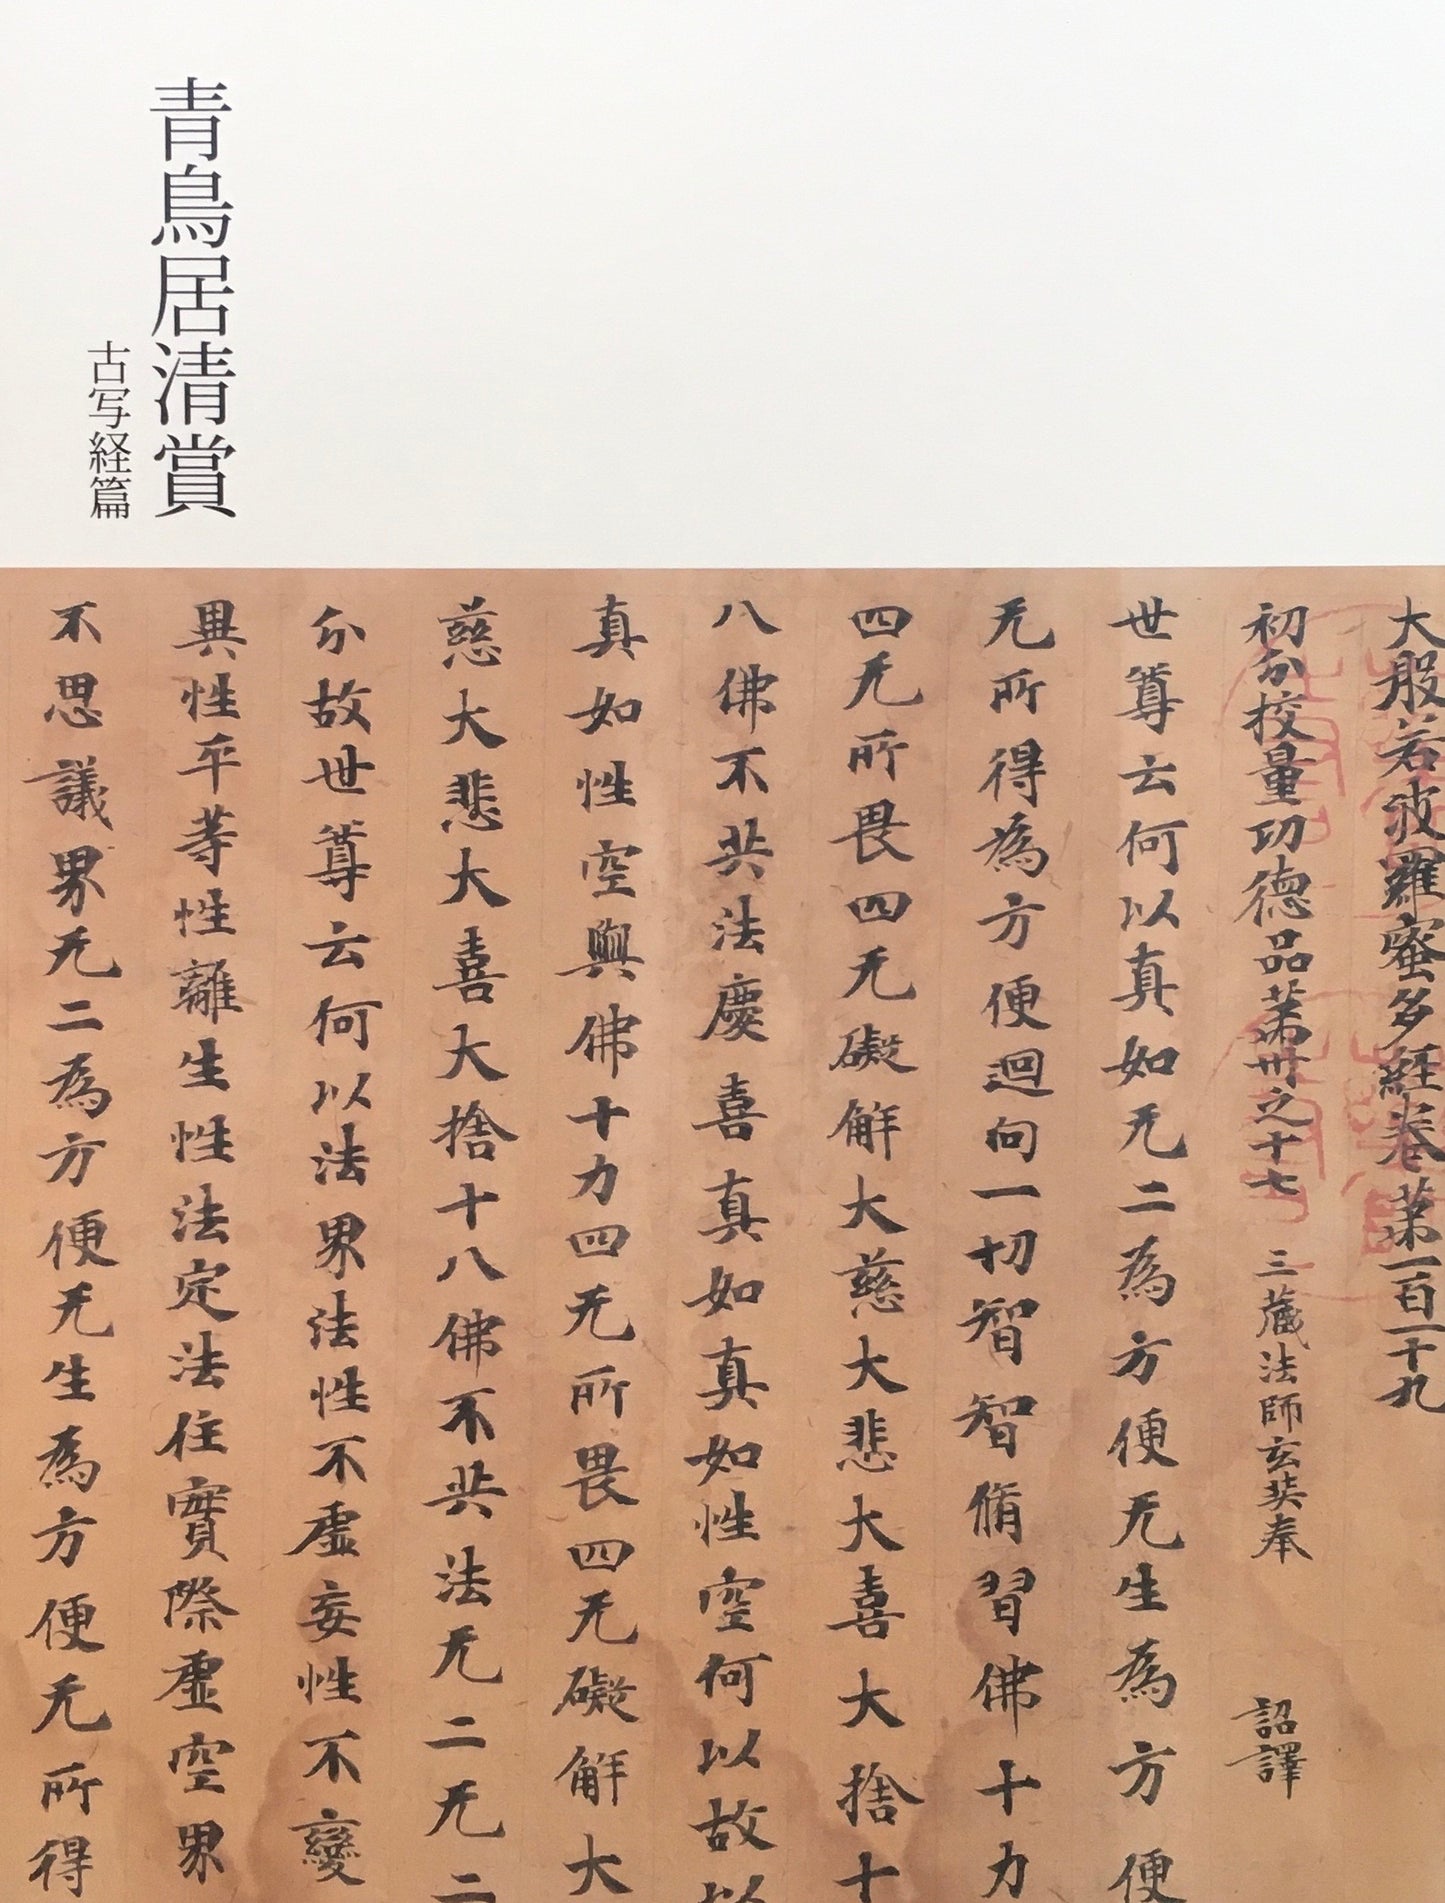 青鳥居清賞
古写経篇
大般若波羅蜜多経巻第一百一十九
初分校量功徳品第卅之十七 三蔵法師玄奘奉 詔譯
世尊云何以真如无二為方便无生為方便
无所得為方便迴向一切智智脩習佛十力
四无所畏四无礙解大慈大悲大喜大捨十
八佛不共法慶喜真如真如性空何以故以
真如性空與佛十力四无所畏四无礙解大
慈大悲大喜大捨十八佛不共法无二无二
分故世尊云何以法界法性不虛妄性不變
異性平等性離生性法定法住實際虛空界
不思議界无二為方便无生為方便无所得